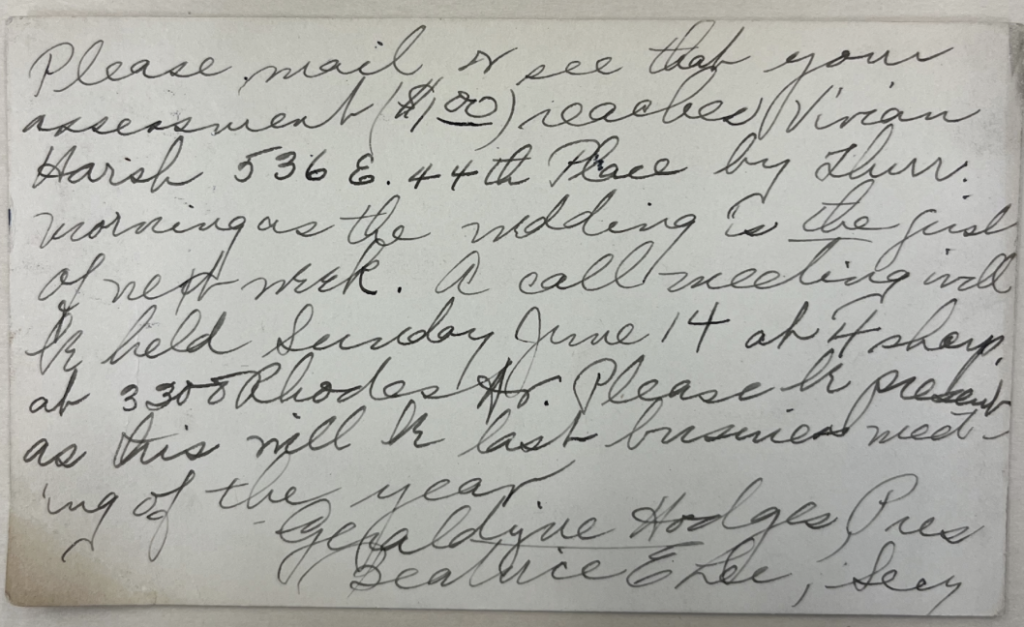 Please mail or see that your
assessment ($1.00) reaches Vivian
Harsh 536 E. 44th Place by Thurr.
morning as the wedding is the first
of next week. A call meeting will
be held Sunday June 14 at 4 sharp.
at 3305 Rhodes Av. Please be present
as this will be last business meet-
ing of the year
Geraldyne Hodges, Pres
Beatrice E Lee, Secy